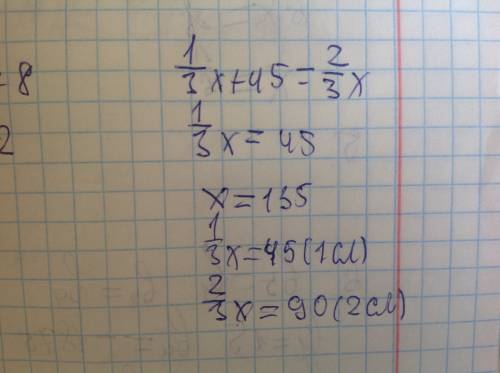 = 8
2
1/3 x+45=2/3 x
1/3 x=45
x=135
1/3 x=45(1сл)
2/3 x=90(2сл)